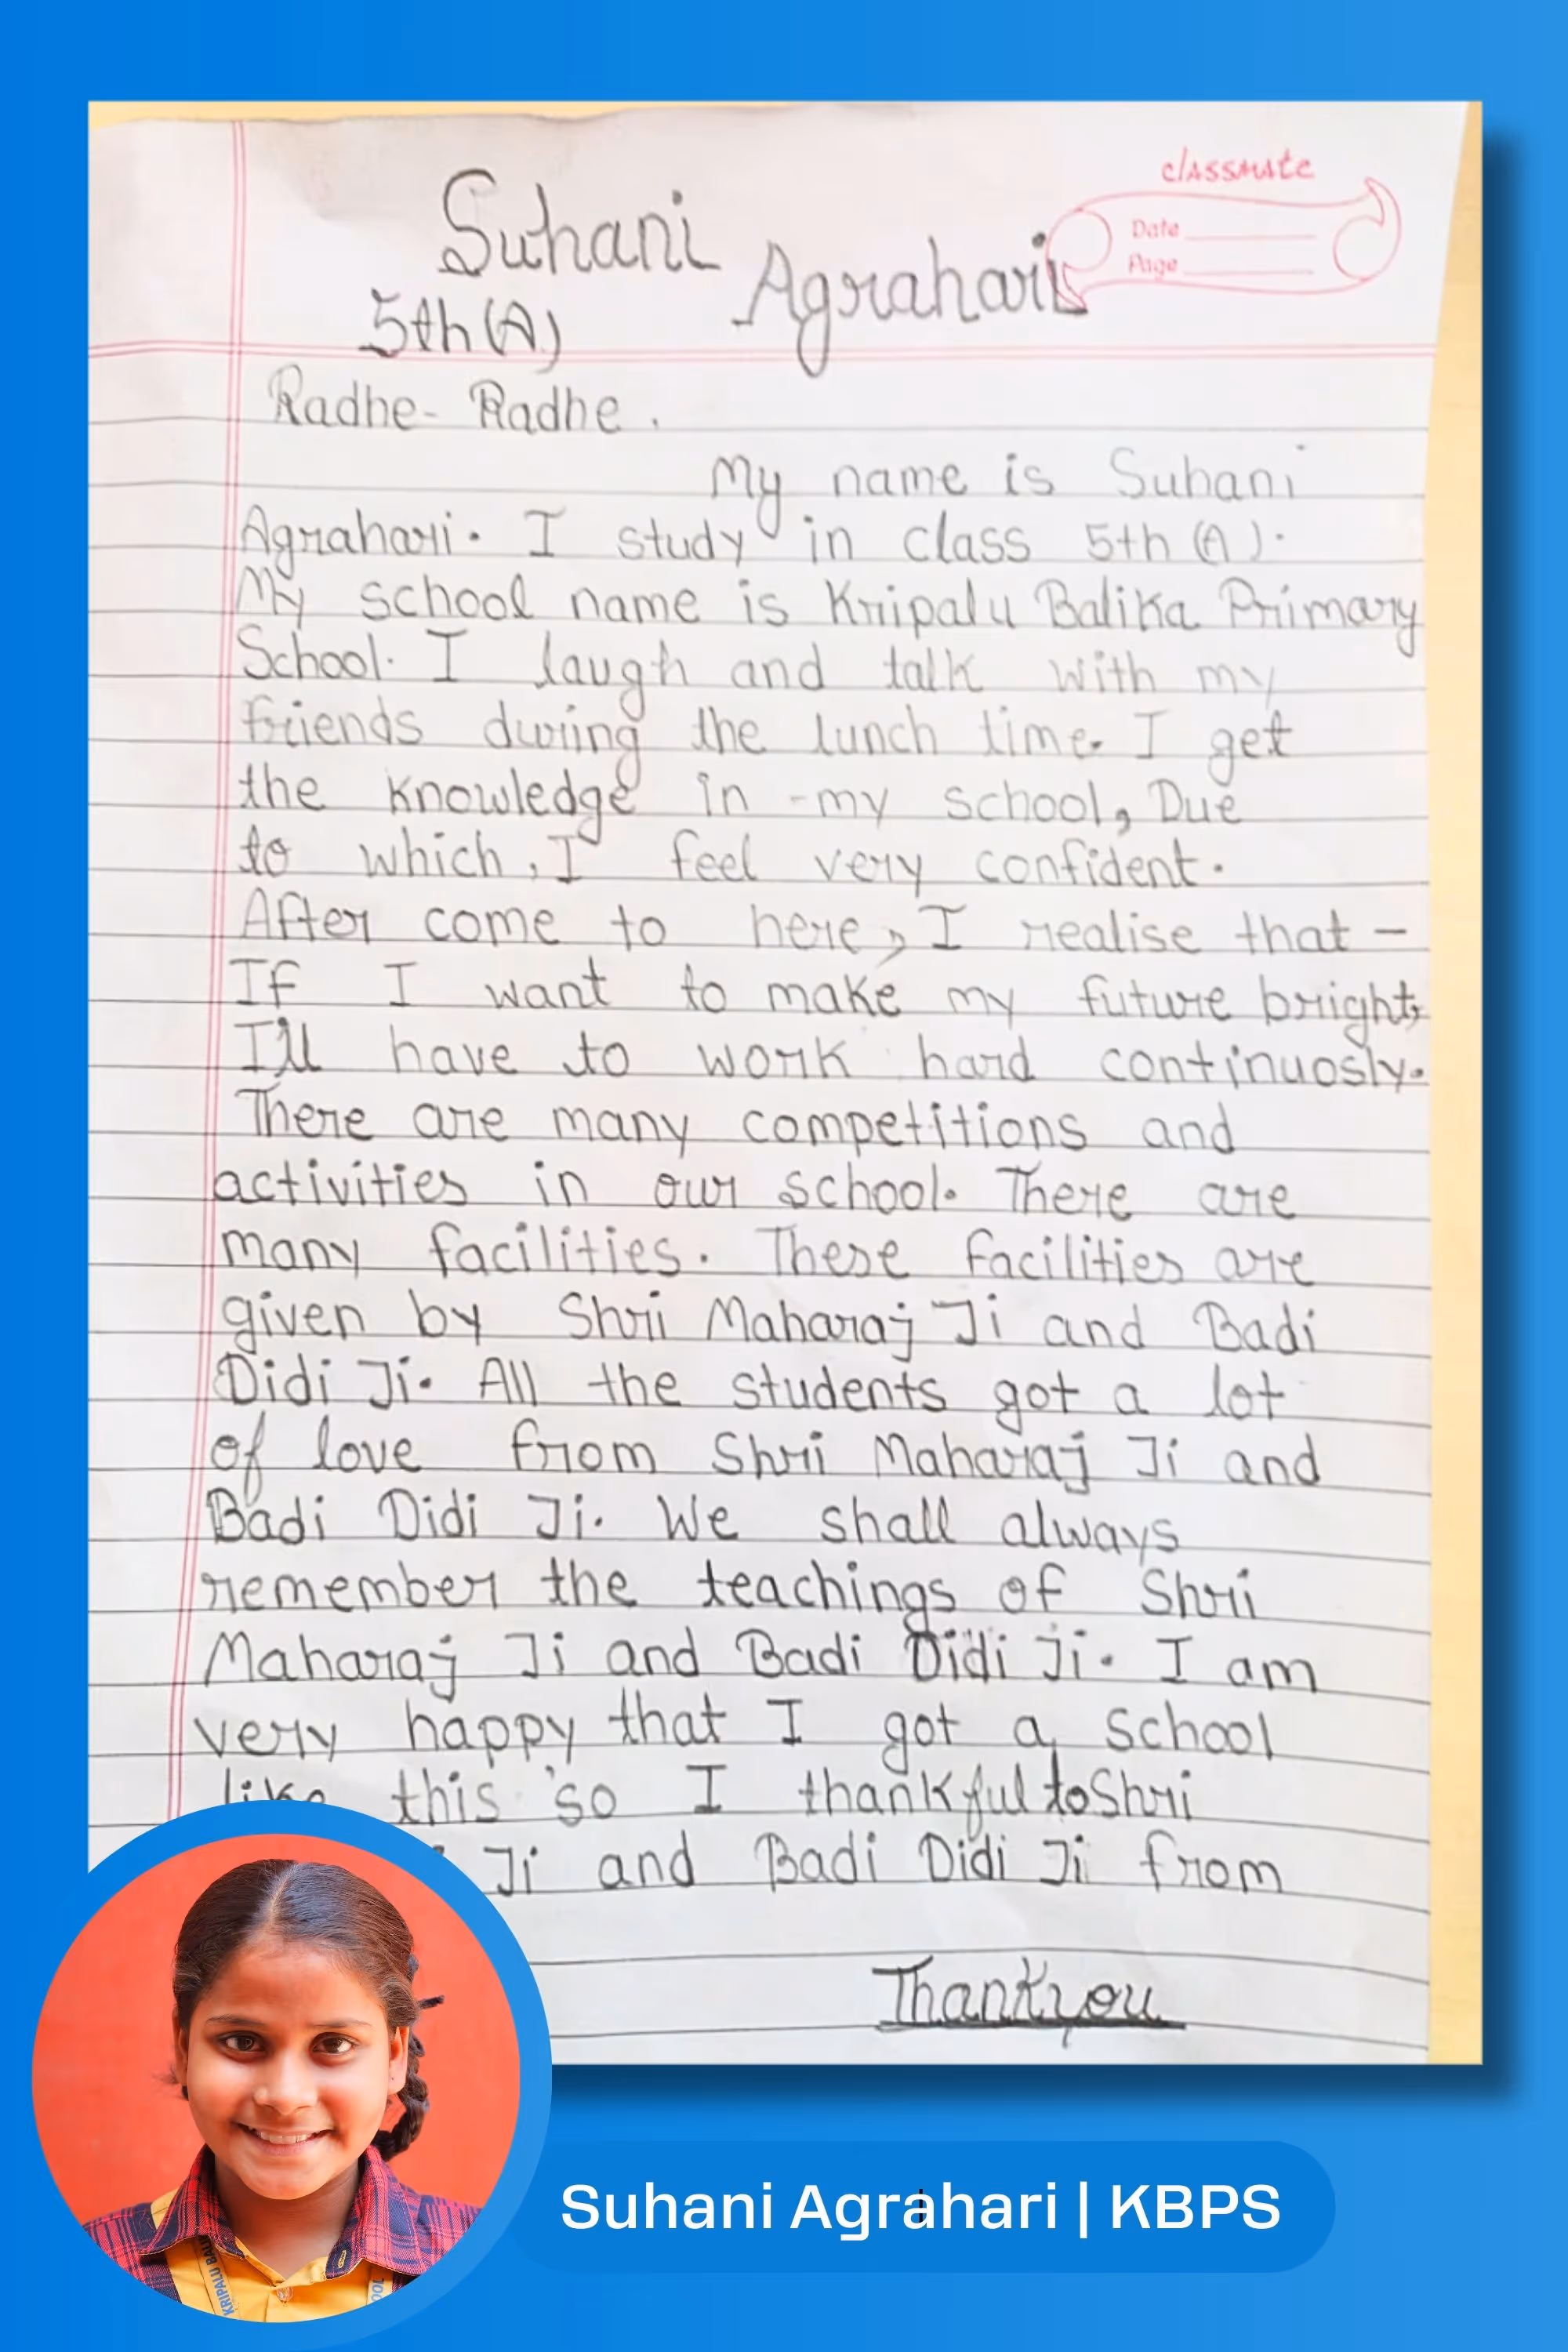 classmate
Date
Page
Suhani Agrahari
5th (A)
Radhe- Radhe.
My name is Suhani
Agrahari. I study in class 5th (A).
My school name is Kripalu Balika Primary
School. I laugh and talk with my
friends during the lunch time. I get
the knowledge in -my school, Due
to which, I feel very confident.
After come to here, I realise that -
If I want to make my future bright,
I'll have to work hard continuosly.
There are many competitions and
activities in our school. There are
many facilities. These facilities are
given by Shri Maharaj Ji and Badi
Didi Ji. All the students got a lot
of love from Shri Maharaj Ji and
Badi Didi Ji. We shall always
remember the teachings of Shri
Maharaj Ji and Badi Didi Ji. I am
very happy that I got a school
like this so I thankful to Shri
Ji and Badi Didi Ji from
Thankyou
KRIPALU
Suhani Agrahari | KBPS